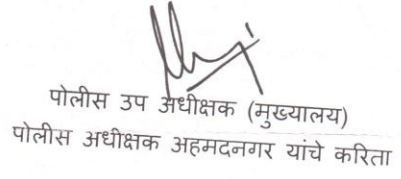 पोलीस उप अधीक्षक (मुख्यालय)
पोलीस अधीक्षक अहमदनगर यांचे करिता